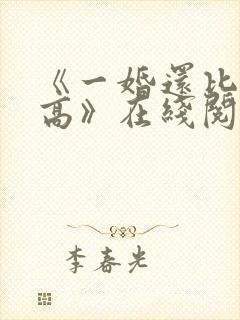 《一婚還比
高》在綫閱
李春光